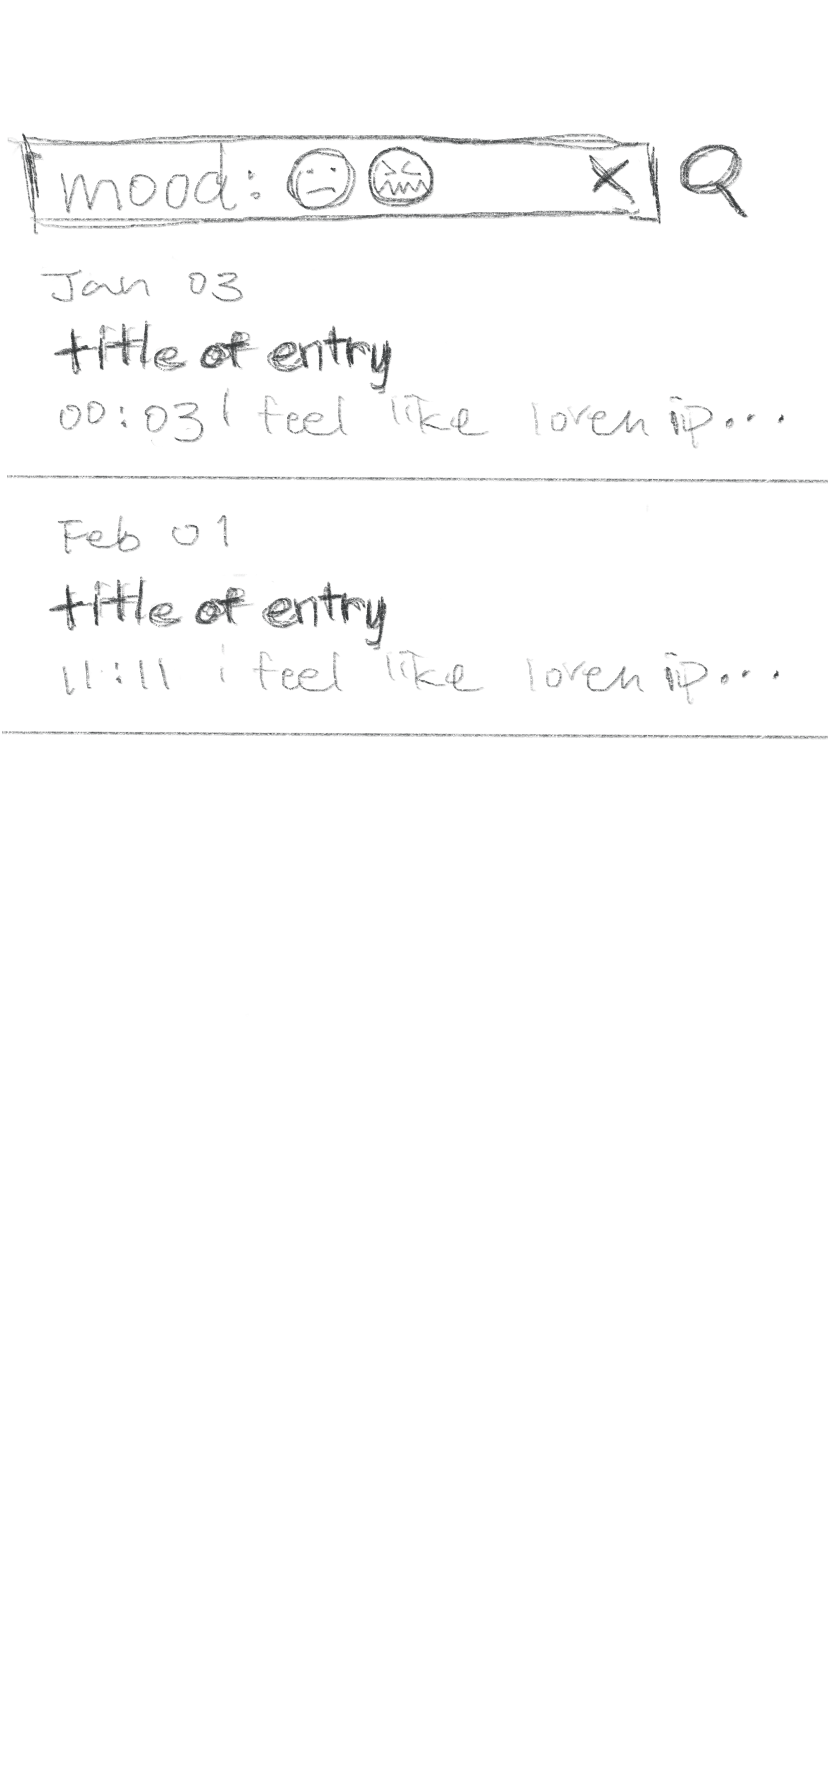 mood:
Jan 03
title of entry
00:03 i feel like loren ip...
Feb 01
title of entry
11:11 i feel like loren ip...